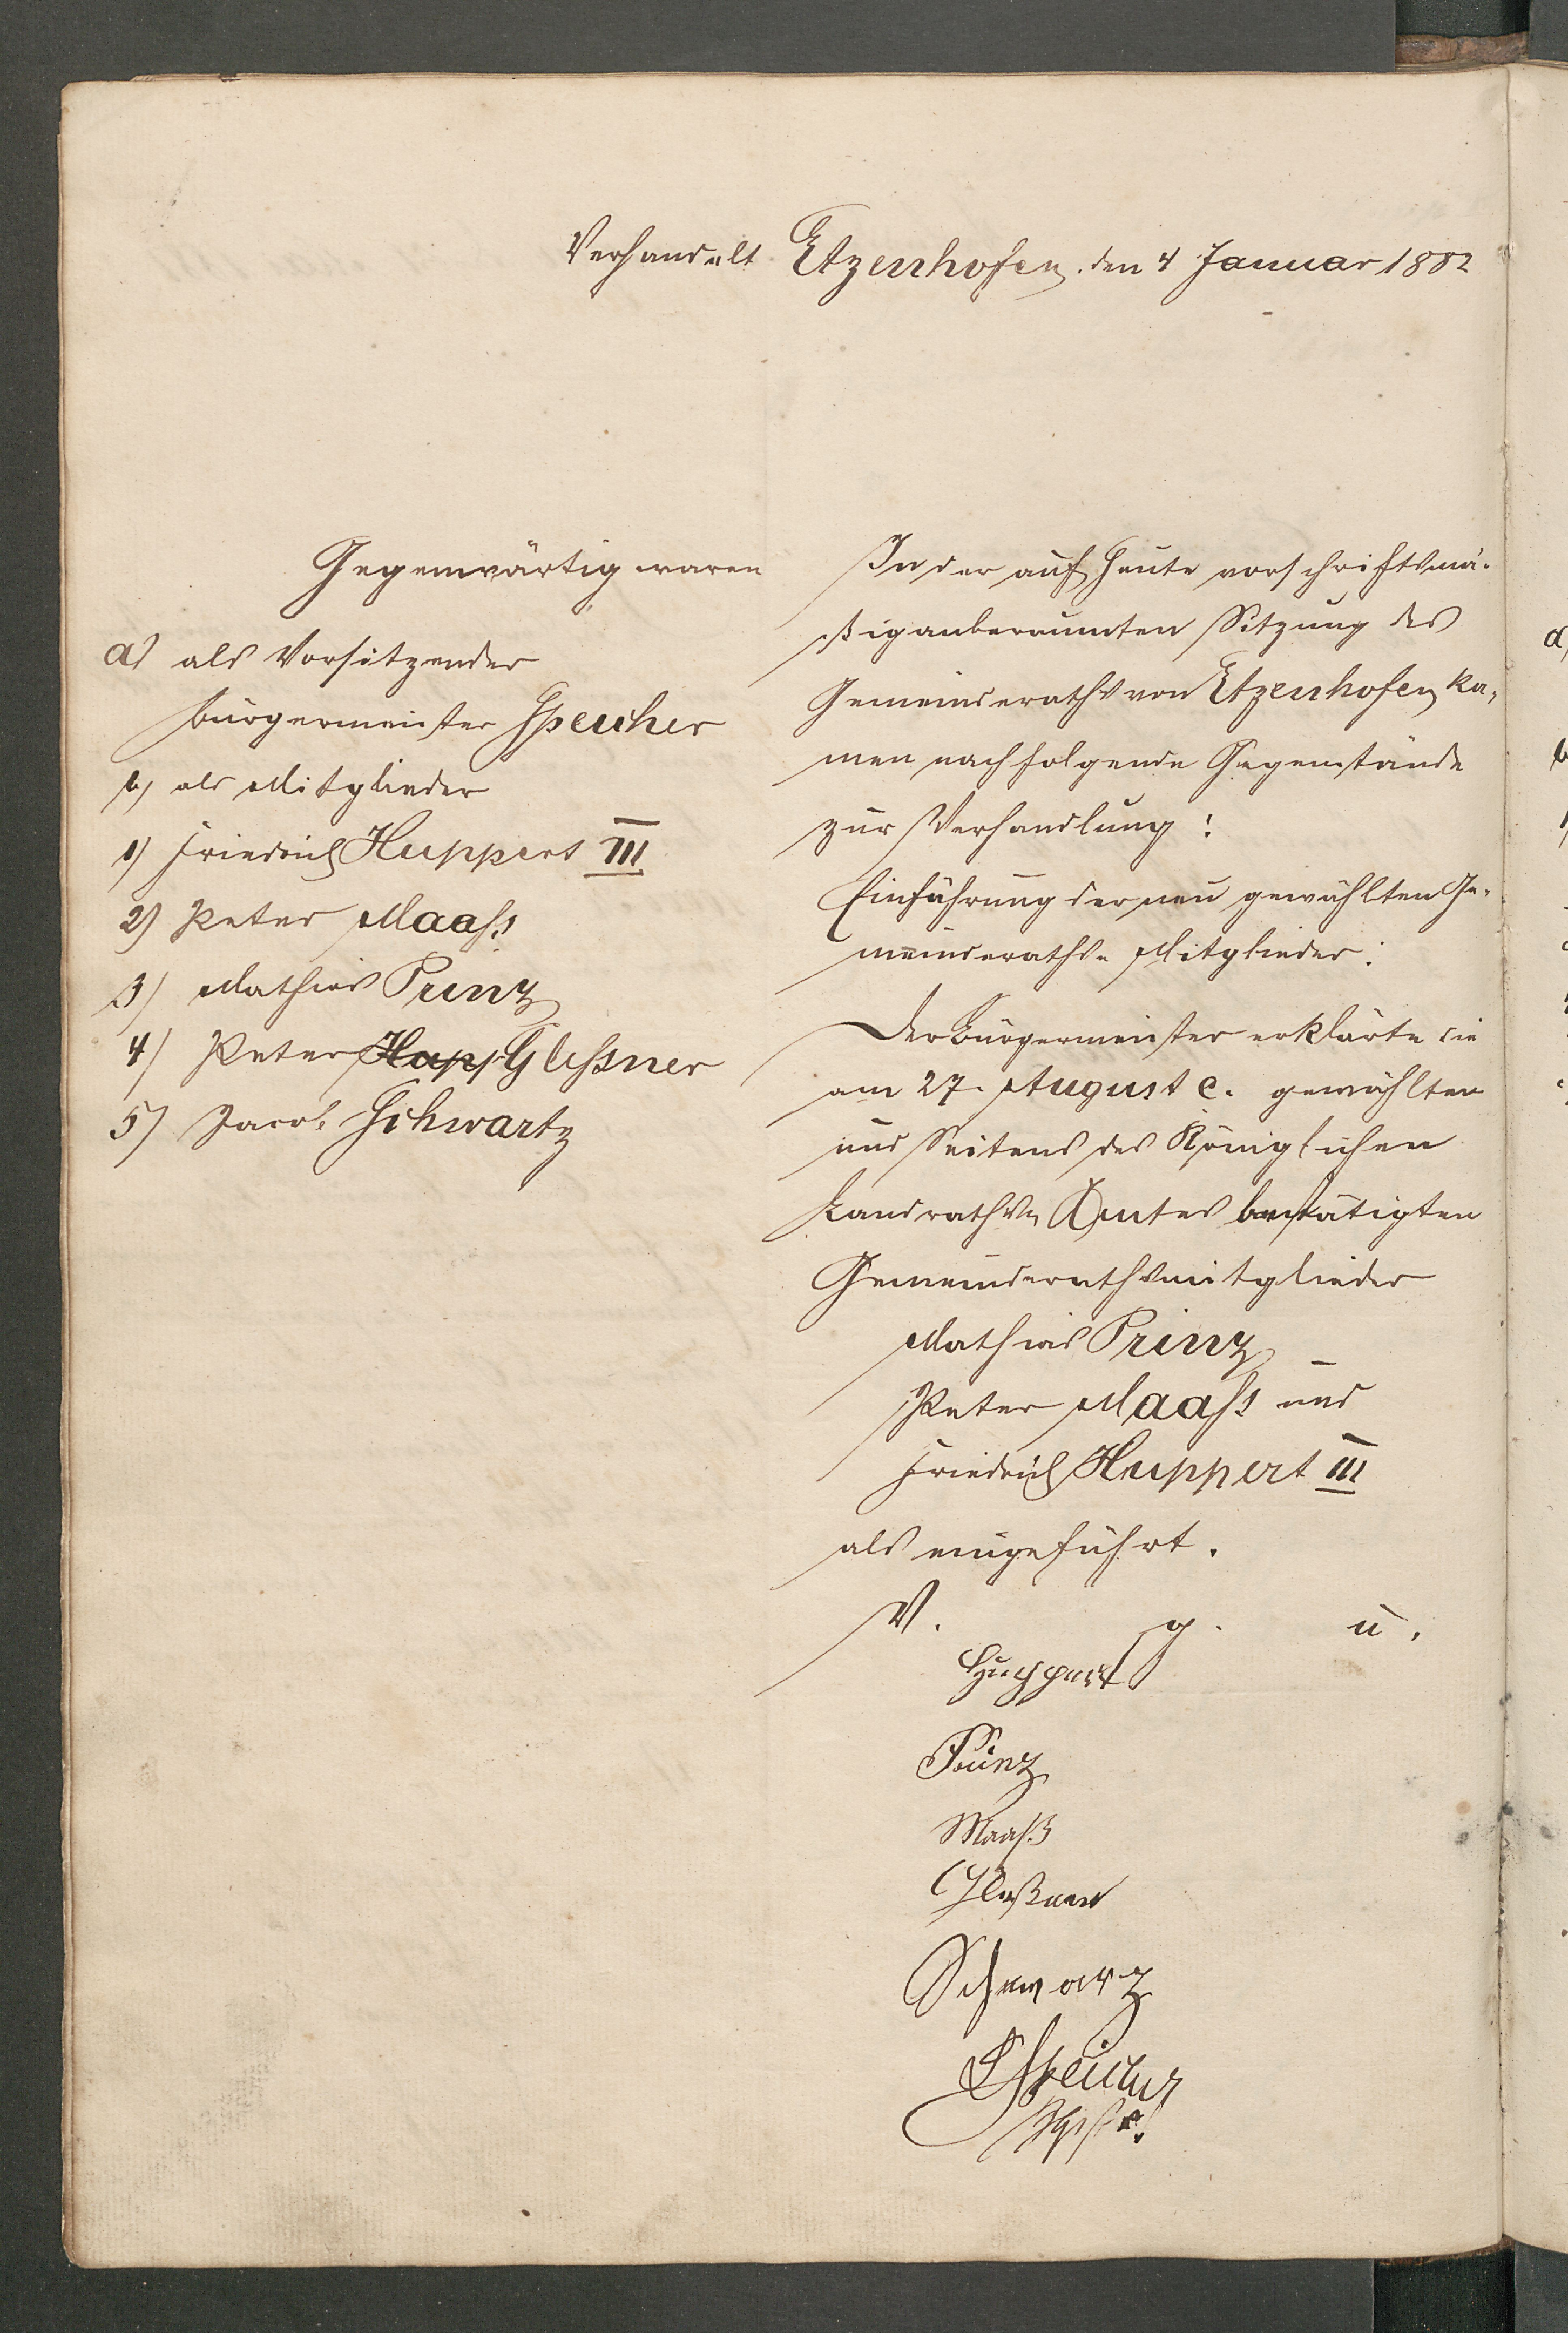 Verhandelt Etzenhofen, den 4 Januar 1882
Gegenwärtig waren
a) als Vorsitzender
Bürgermeister Speicher
b) als Mitglieder
1) Friedrich Huppert III
2) Peter Maaß
3) Mathias Prinz
4) Peter Hap Gleßner
5) Jacob Schwartz
In der auf heute vorschriftsmä-
ßig anberaumten Sitzung des
Gemeinderaths von Etzenhofen ka-
men nachfolgende Gegenstände
zur Verhandlung:
Einführung der neu gewählten Ge-
meinderaths-Mitglieder:
Der Bürgermeister erklärte die
am 27. August c. gewählten
und Seitens des Königlichen
Landraths-Amtes bestätigten
Gemeinderathsmitglieder
Mathias Prinz
Peter Maaß und
Friedrich Huppert III
als eingeführt.
V. g. u.
Huppert
Prinz
Maaß
Gleßner
Schwartz
Speicher